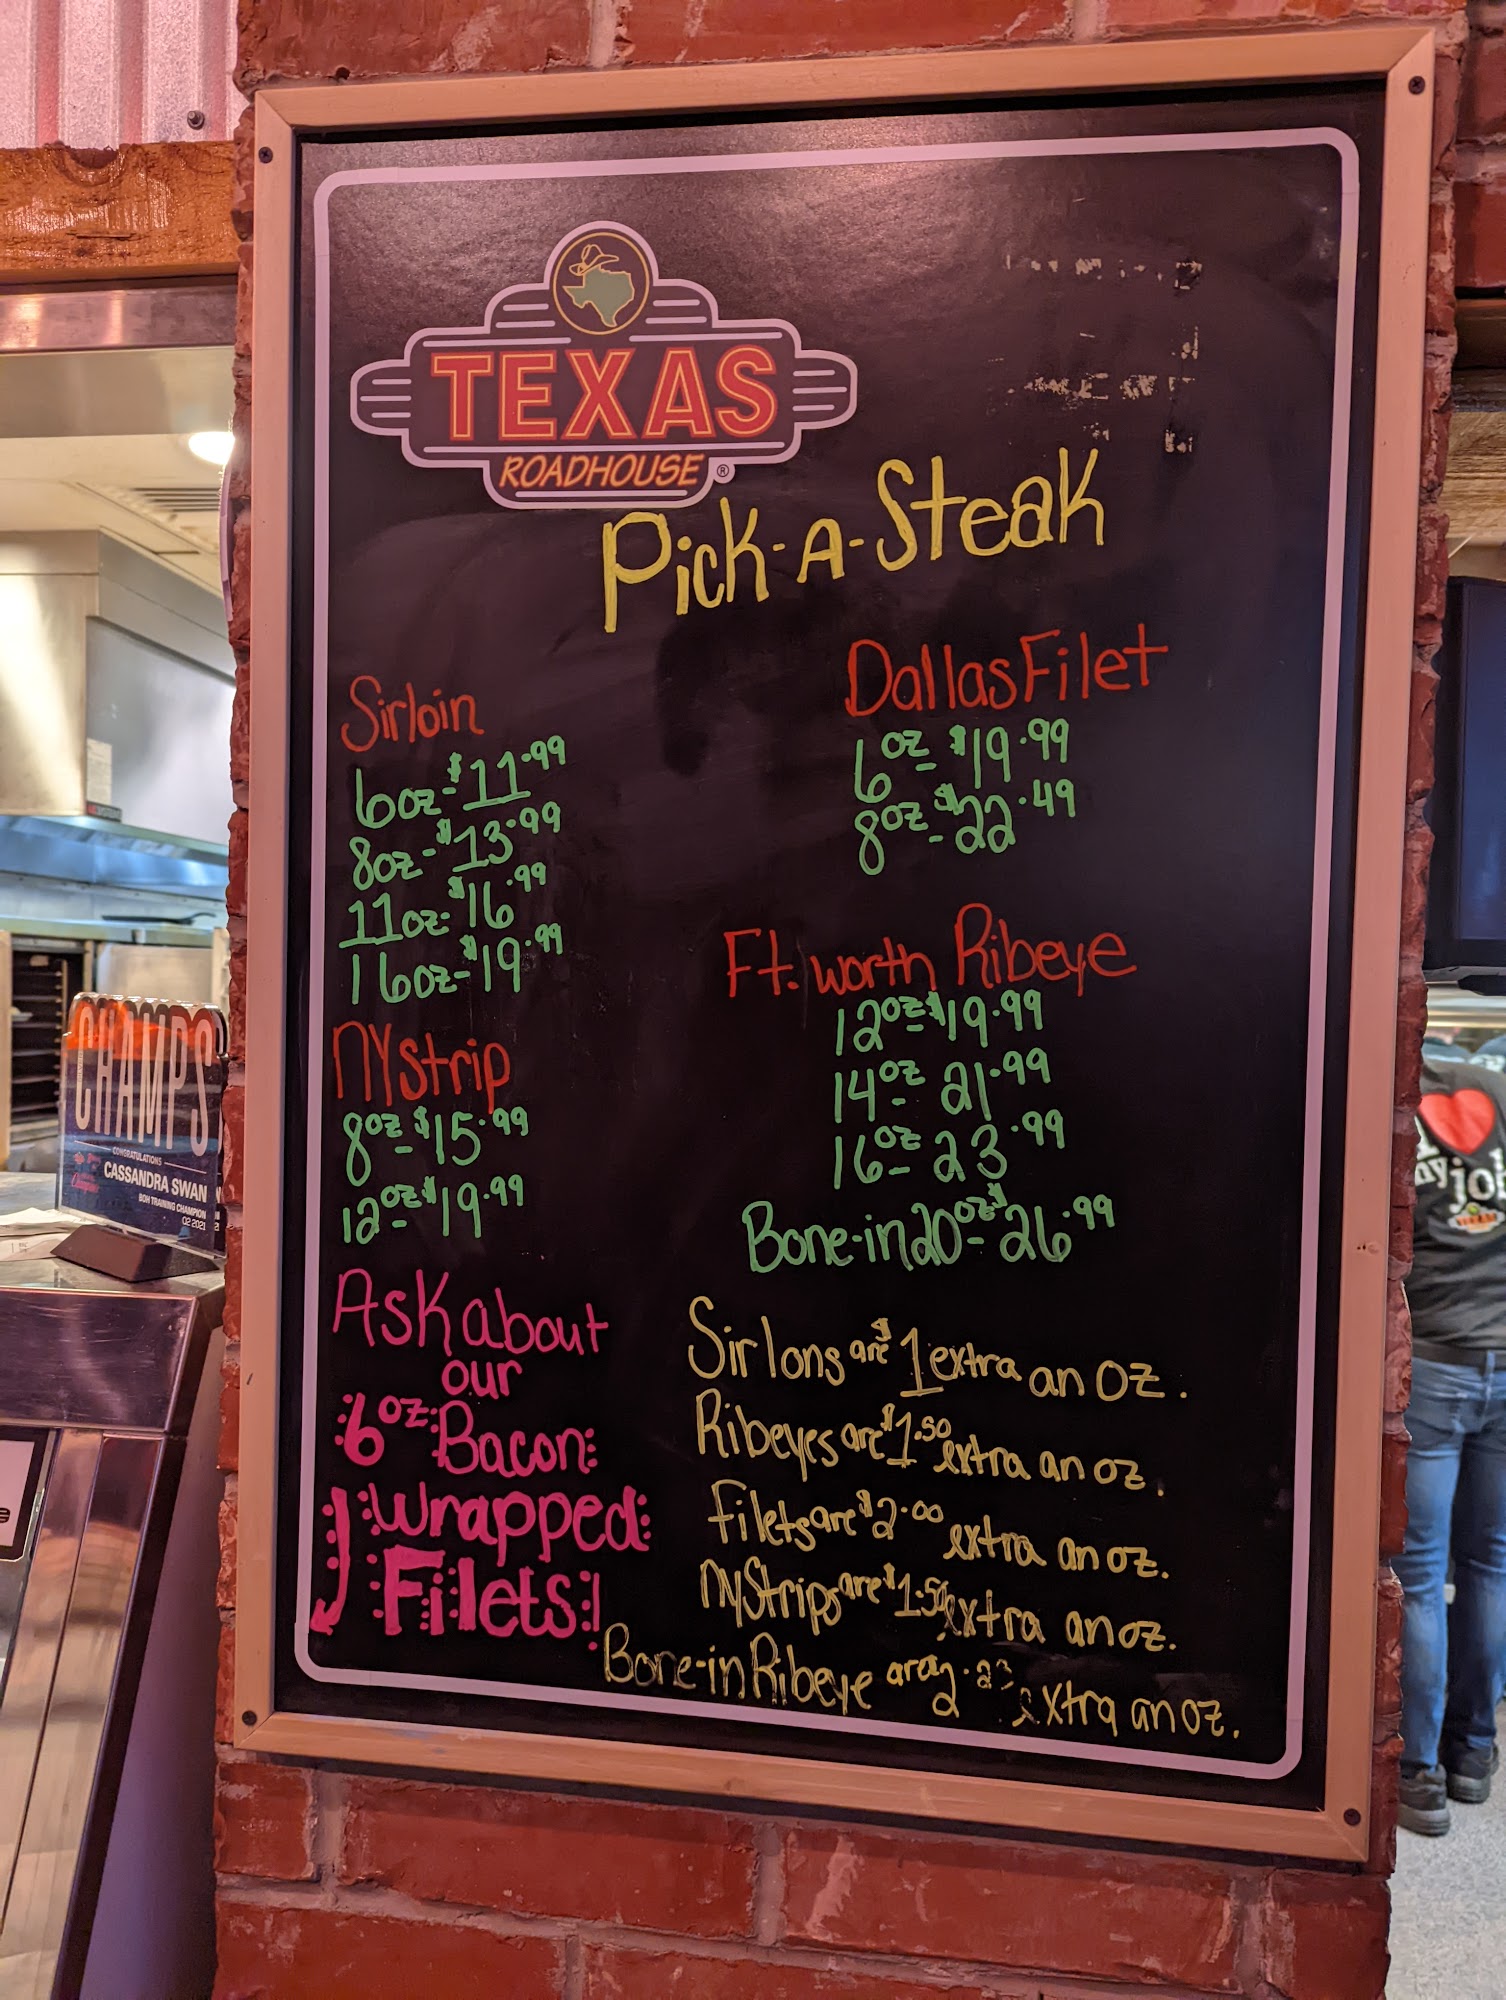 TEXAS
ROADHOUSE®
Pick-A-Steak
Sirloin
6oz-$11.99
8oz-$13.99
11oz-$16.99
16oz-$19.99
NY Strip
8oz-$15.99
12oz-$19.99
Dallas Filet
6oz-$19.99
8oz-$22.49
Ft. Worth Ribeye
12oz-$19.99
14oz-21.99
16oz-23.99
Bone-in 20oz-$26.99
Ask about
our
6oz Bacon
Wrapped
Filets!
Sirlons are $1 extra an oz.
Ribeyes are $1.50 extra an oz.
Filets are $2.00 extra an oz.
NY Strips are $1.50 extra an oz.
Bone-in Ribeye extra an oz.
CHAMPS
CONGRATULATIONS
CASSANDRA SWAN
BOH TRAINING CHAMPION
Q2 2021
my job